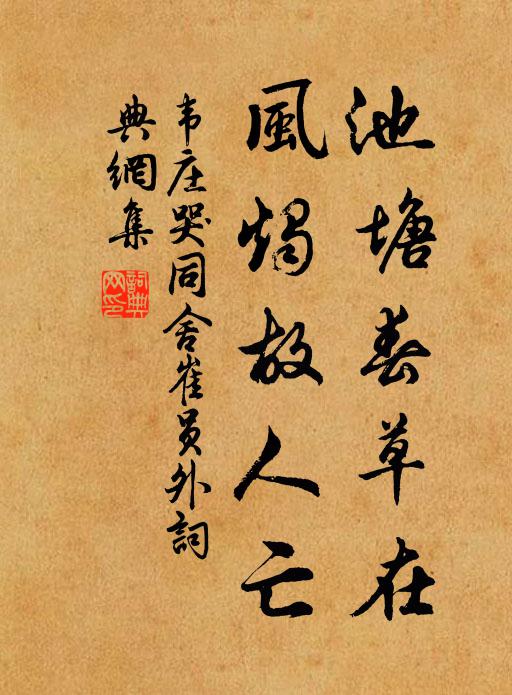 池塘春草在
風燭故人亡
韦庄哭同舍崔员外詞
典網集
詞典網印